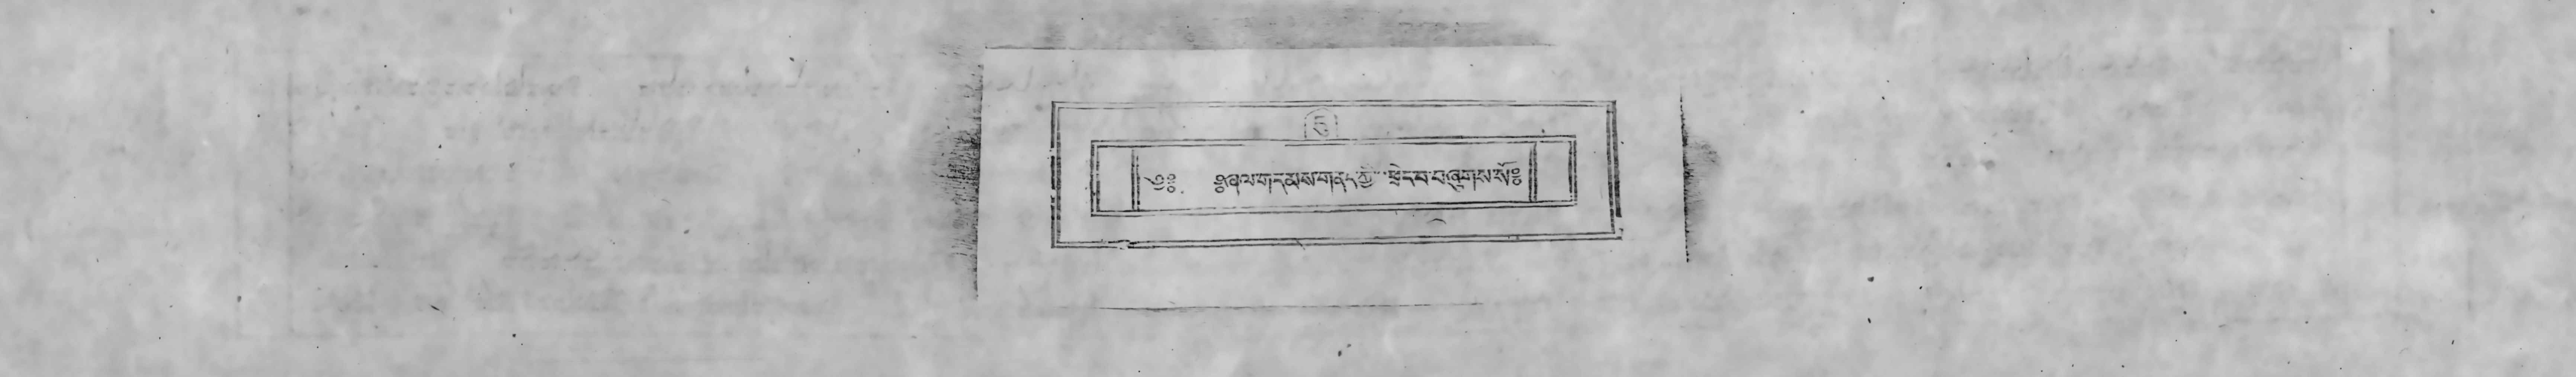 ཏྲ
༄༅༔ ༔ཞལ་གདམས་གནད་ཀྱི་ཕྲེང་བ་བཞུགས་སོ༔